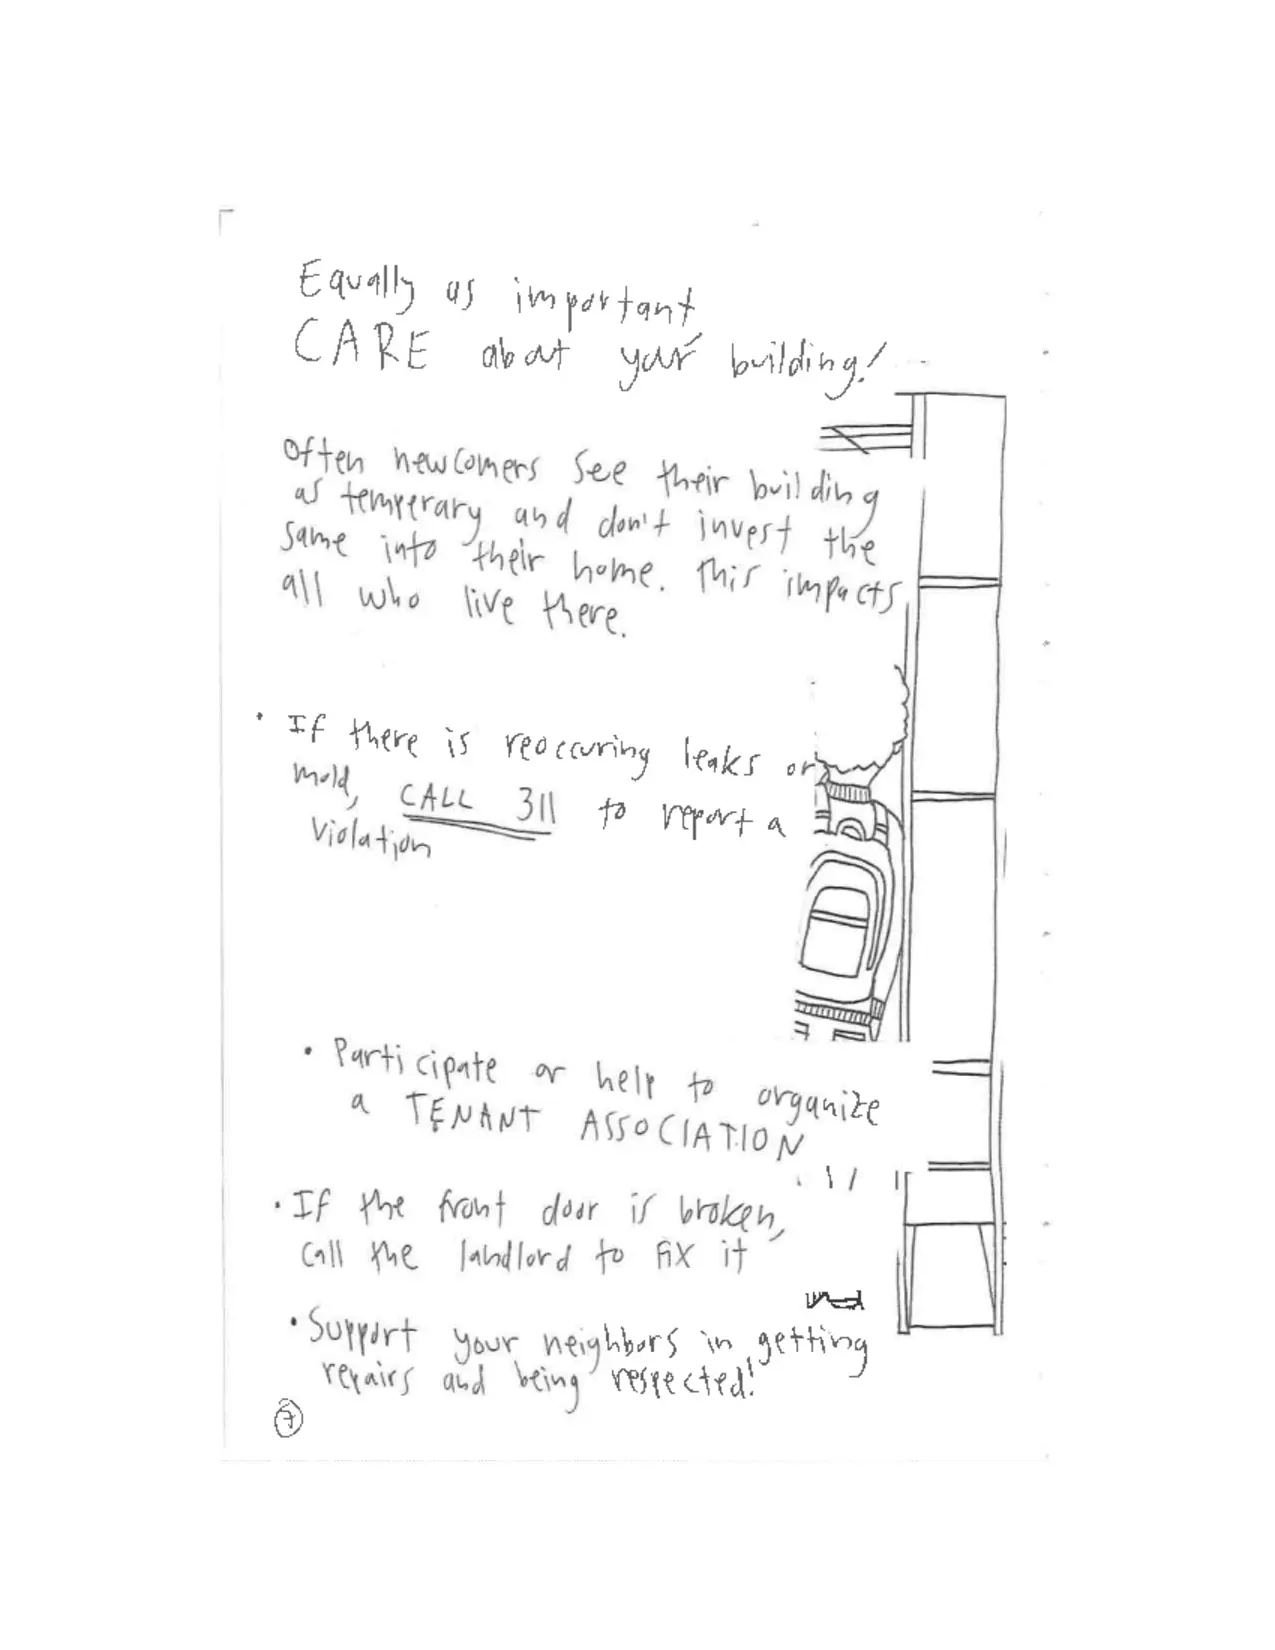 Equally as important
CARE about your building!
Often newcomers see their building
as temperary and don't invest the
same into their home. This impacts
all who live there.
• If there is reoccuring leaks or
mold, CALL 311 to report a
violation
• Participate or help to organize
a TENANT ASSOCIATION
• If the front door is broken,
call the landlord to fix it
• Support your neighbors in getting
repairs and being respected!
7